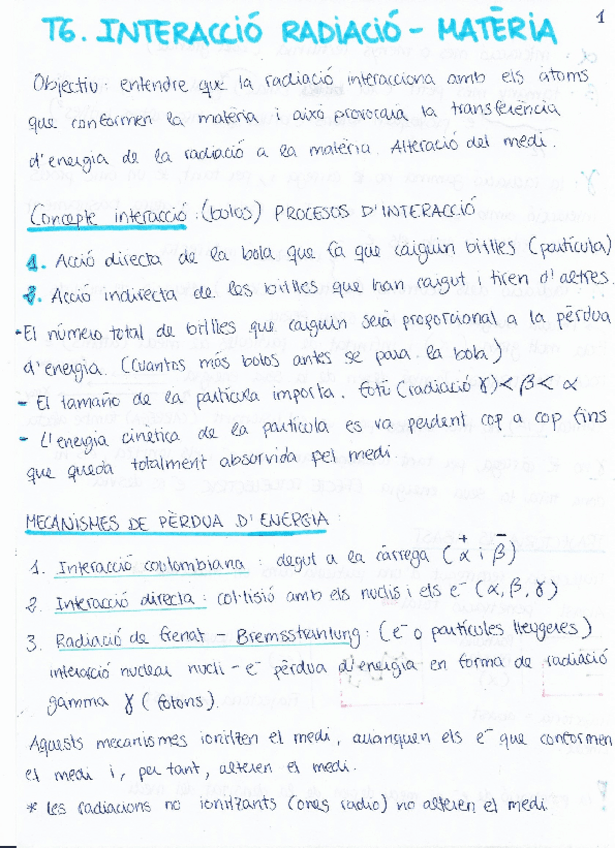 T6. INTERACCIÓ RADIACIÓ - MATÈRIA
1
Objectiu: entendre que la radiació interacciona amb els àtoms
que conformen la matèria i això provocarà la transferència
d'energia de la radiació a la matèria. Alteració del medi.
Concepte interacció: (bolos) PROCESOS D'INTERACCIÓ
1. Acció directa de la bola que fa que caiguin bitlles (partícula)
2. Acció indirecta de les bitlles que han caigut i tiren d'altres.
- El número total de bitlles que caiguin serà proporcional a la pèrdua
d'energia. (Cuantos más bolos antes se para la bola)
- El tamaño de la partícula importa. Fotó (radiació γ) < β < α
- L'energia cinètica de la partícula es va perdent cop a cop fins
que queda totalment absorvida pel medi.
MECANISMES DE PÈRDUA D'ENERGIA:
1. Interacció coulombiana: degut a la càrrega (α⁺ i β⁻)
2. Interacció directa: col·lisió amb els nuclis i els e⁻ (α, β, γ)
3. Radiació de frenat - Bremsstranlung: (e⁻ o partícules lleugeres)
interacció nuclear nucli - e⁻ pèrdua d'energia en forma de radiació
gamma γ (fotons).
Aquests mecanismes ionitzen el medi, arranquen els e⁻ que conformen
el medi i, per tant, alteren el medi.
* Les radiacions no ionitzants (ones radio) no alteren el medi